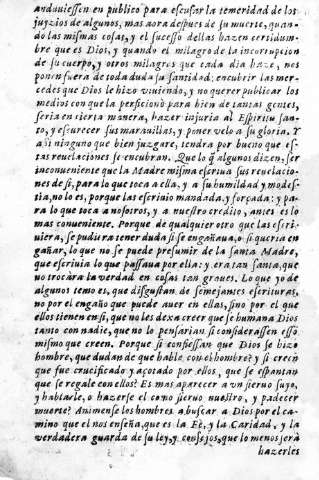 anduuiessen en publico para escusar la temeridad de los
juyzios de algunos, mas aora despues de su muerte, quan-
do las mismas cosas, y el sucesso dellas hazen certidum-
bre que es Dios, y quando el milagro de la incorrupcion
de su cuerpo, y otros milagros que cada dia haze, nos
ponen fuera de toda duda su santidad: encubrir las mer-
cedes que Dios le hizo viuiendo, y no querer publicar los
medios con que la perficionò para bien de tantas gentes,
seria en cierta manera, hazer injuria al Espiritu san-
to, y escurecer sus marauillas, y poner velo a su gloria. Y
assi ninguno que bien juzgare, tendra por bueno que es-
tas reuelaciones se encubran. Que lo q̃ algunos dizen, ser
inconueniente que la Madre misma escriua sus reuelacio-
nes de si, para lo que toca a ella, y a su humildad y modes-
tia, no lo es, porque las escriuio mandada, y forçada: y pa-
ra lo que toca a nosotros, y a nuestro credito, antes es lo
mas conueniente. Porque de qualquier otro que las escri-
uiera, se pudiera tener duda si se engañaua, o si queria en-
gañar, lo que no se puede presumir de la santa Madre,
que escriuia lo que passaua por ella: y era tan santa, que
no trocàra la verdad en cosas tan graues. Lo que yo de
algunos temo es, que disgustan de semejantes escrituras,
no por el engaño que puede auer en ellas, sino por el que
ellos tienen en si, que no les dexa creer que se humana Dios
tanto con nadie, que no lo pensarian si considerassen esso
mismo que creen. Porque si confiessan que Dios se hizo
hombre, que dudan de que hable con el hombre? y si creen
que fue crucificado y açotado por ellos, que se espantan
que se regale con ellos? Es mas aparecer a vn sieruo suyo,
y hablarle, o hazerse el como sieruo nuestro, y padecer
muerte? Animense los hombres a buscar a Dios por el ca-
mino que el nos enseña, que es la Fe, y la Caridad, y la
verdadera guarda de su ley, y consejos, que lo menos serà
hazerles